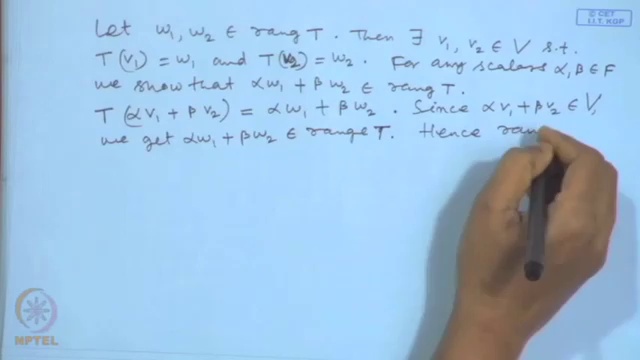 © CET
I.I.T. KGP
Let w₁, w₂ ∈ rang T. Then ∃ v₁, v₂ ∈ V s.t.
T(v₁) = w₁ and T(v₂) = w₂. For any scalars α, β ∈ F
we show that αw₁ + βw₂ ∈ rang T.
T(αv₁ + βv₂) = αw₁ + βw₂. Since αv₁ + βv₂ ∈ V,
we get αw₁ + βw₂ ∈ range T. Hence ran
NPTEL